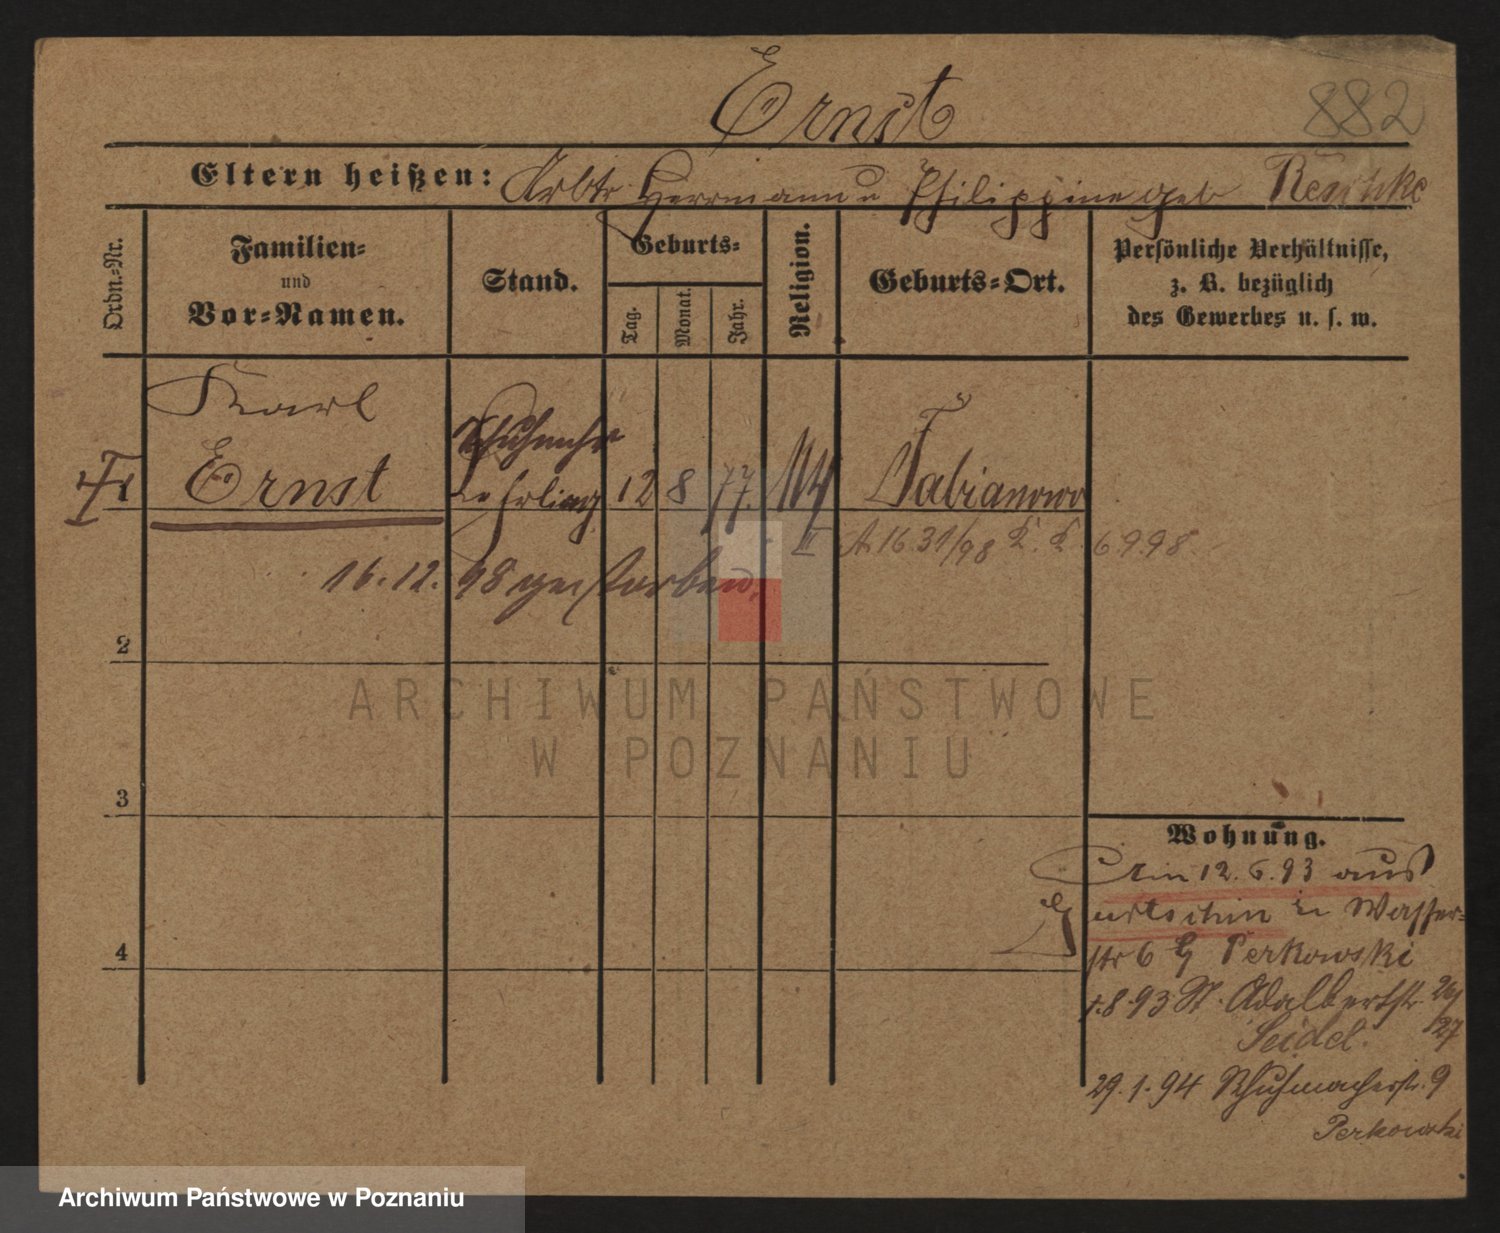 Ernst
882
Eltern heißen: Arbtr Herrmann u Philippine geb Reschke
Ordn.-Nr.
Familien-
und
Vor-Namen.
Stand.
Geburts-
Tag.
Monat.
Jahr.
Religion.
Geburts-Ort.
Persönliche Verhältnisse,
z. B. bezüglich
des Gewerbes u. s. w.
Karl
Ernst
Schuhmchr
Lehrling
12 8 77.
Fabianowo
A. 16.31/98 6.9.98.
16.12. 98 gestorben.
2
3
4
Wohnung.
Am 12.6.93 aus
Gurtschin Wasser-
str 6 Perkowski
1.8.93 St. Adalbertstr. 26/
27
Seidel.
29.1.94 Schuhmacherstr. 9
Perkowski
ARCHIWUM PAŃSTWOWE
W POZNANIU
Archiwum Państwowe w Poznaniu